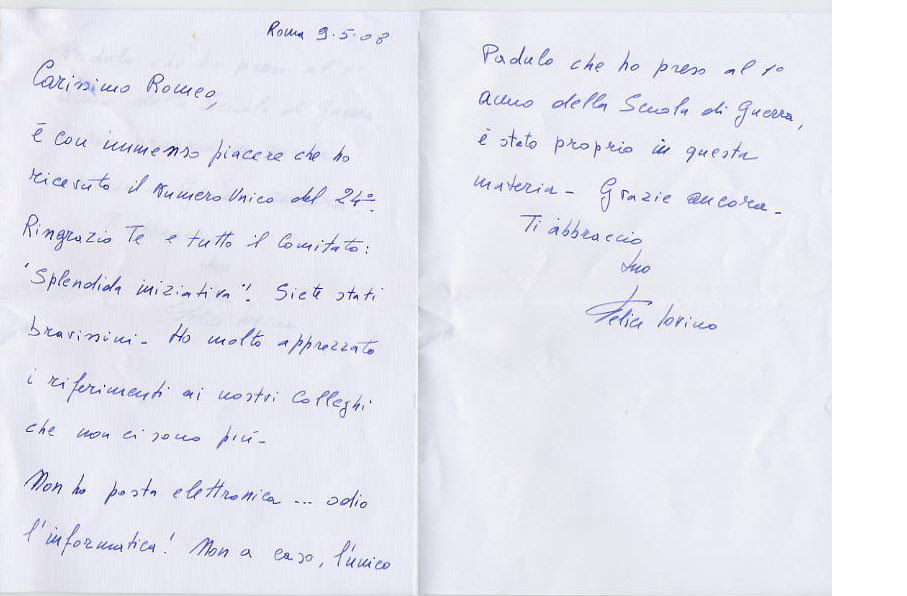 Roma 9.5.08
Carissimo Romeo,
è con immenso piacere che ho
ricevuto il Numero Unico del 24º.
Ringrazio Te e tutto il Comitato:
"Splendida iniziativa". Siete stati
bravissimi - Ho molto apprezzato
i riferimenti ai nostri Colleghi
che non ci sono più -
Non ho posta elettronica ... odio
l'informatica! Non a caso, l'unico
Padulo che ho preso al 1º
anno della Scuola di Guerra,
è stato proprio in questa
materia - Grazie ancora -
Ti abbraccio
tuo
Felice Iovino